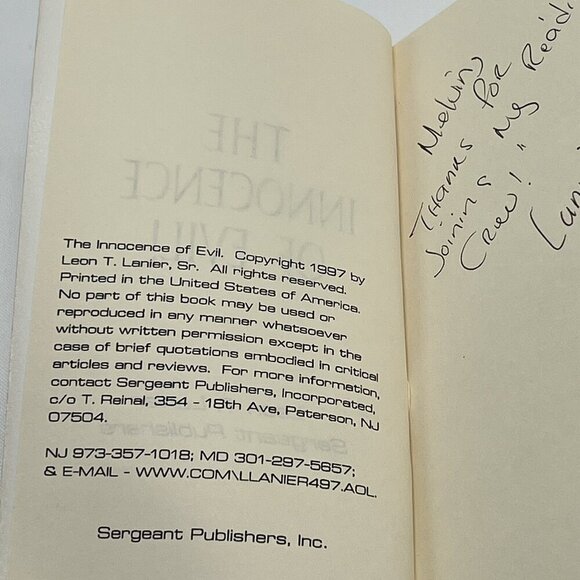 The Innocence of Evil. Copyright 1997 by
Leon T. Lanier, Sr. All rights reserved.
Printed in the United States of America.
No part of this book may be used or
reproduced in any manner whatsoever
without written permission except in the
case of brief quotations embodied in critical
articles and reviews. For more information,
contact Sergeant Publishers, Incorporated,
c/o T. Reinal, 354 - 18th Ave, Paterson, NJ
07504.
NJ 973-357-1018; MD 301-297-5657;
& E-MAIL - WWW.COM\LLANIER497.AOL.
Sergeant Publishers, Inc.
THE
INNOCENCE
OF EVIL
Sergeant Publishers
Melvin,
Thanks for
Joining "My Readi
Crew!"